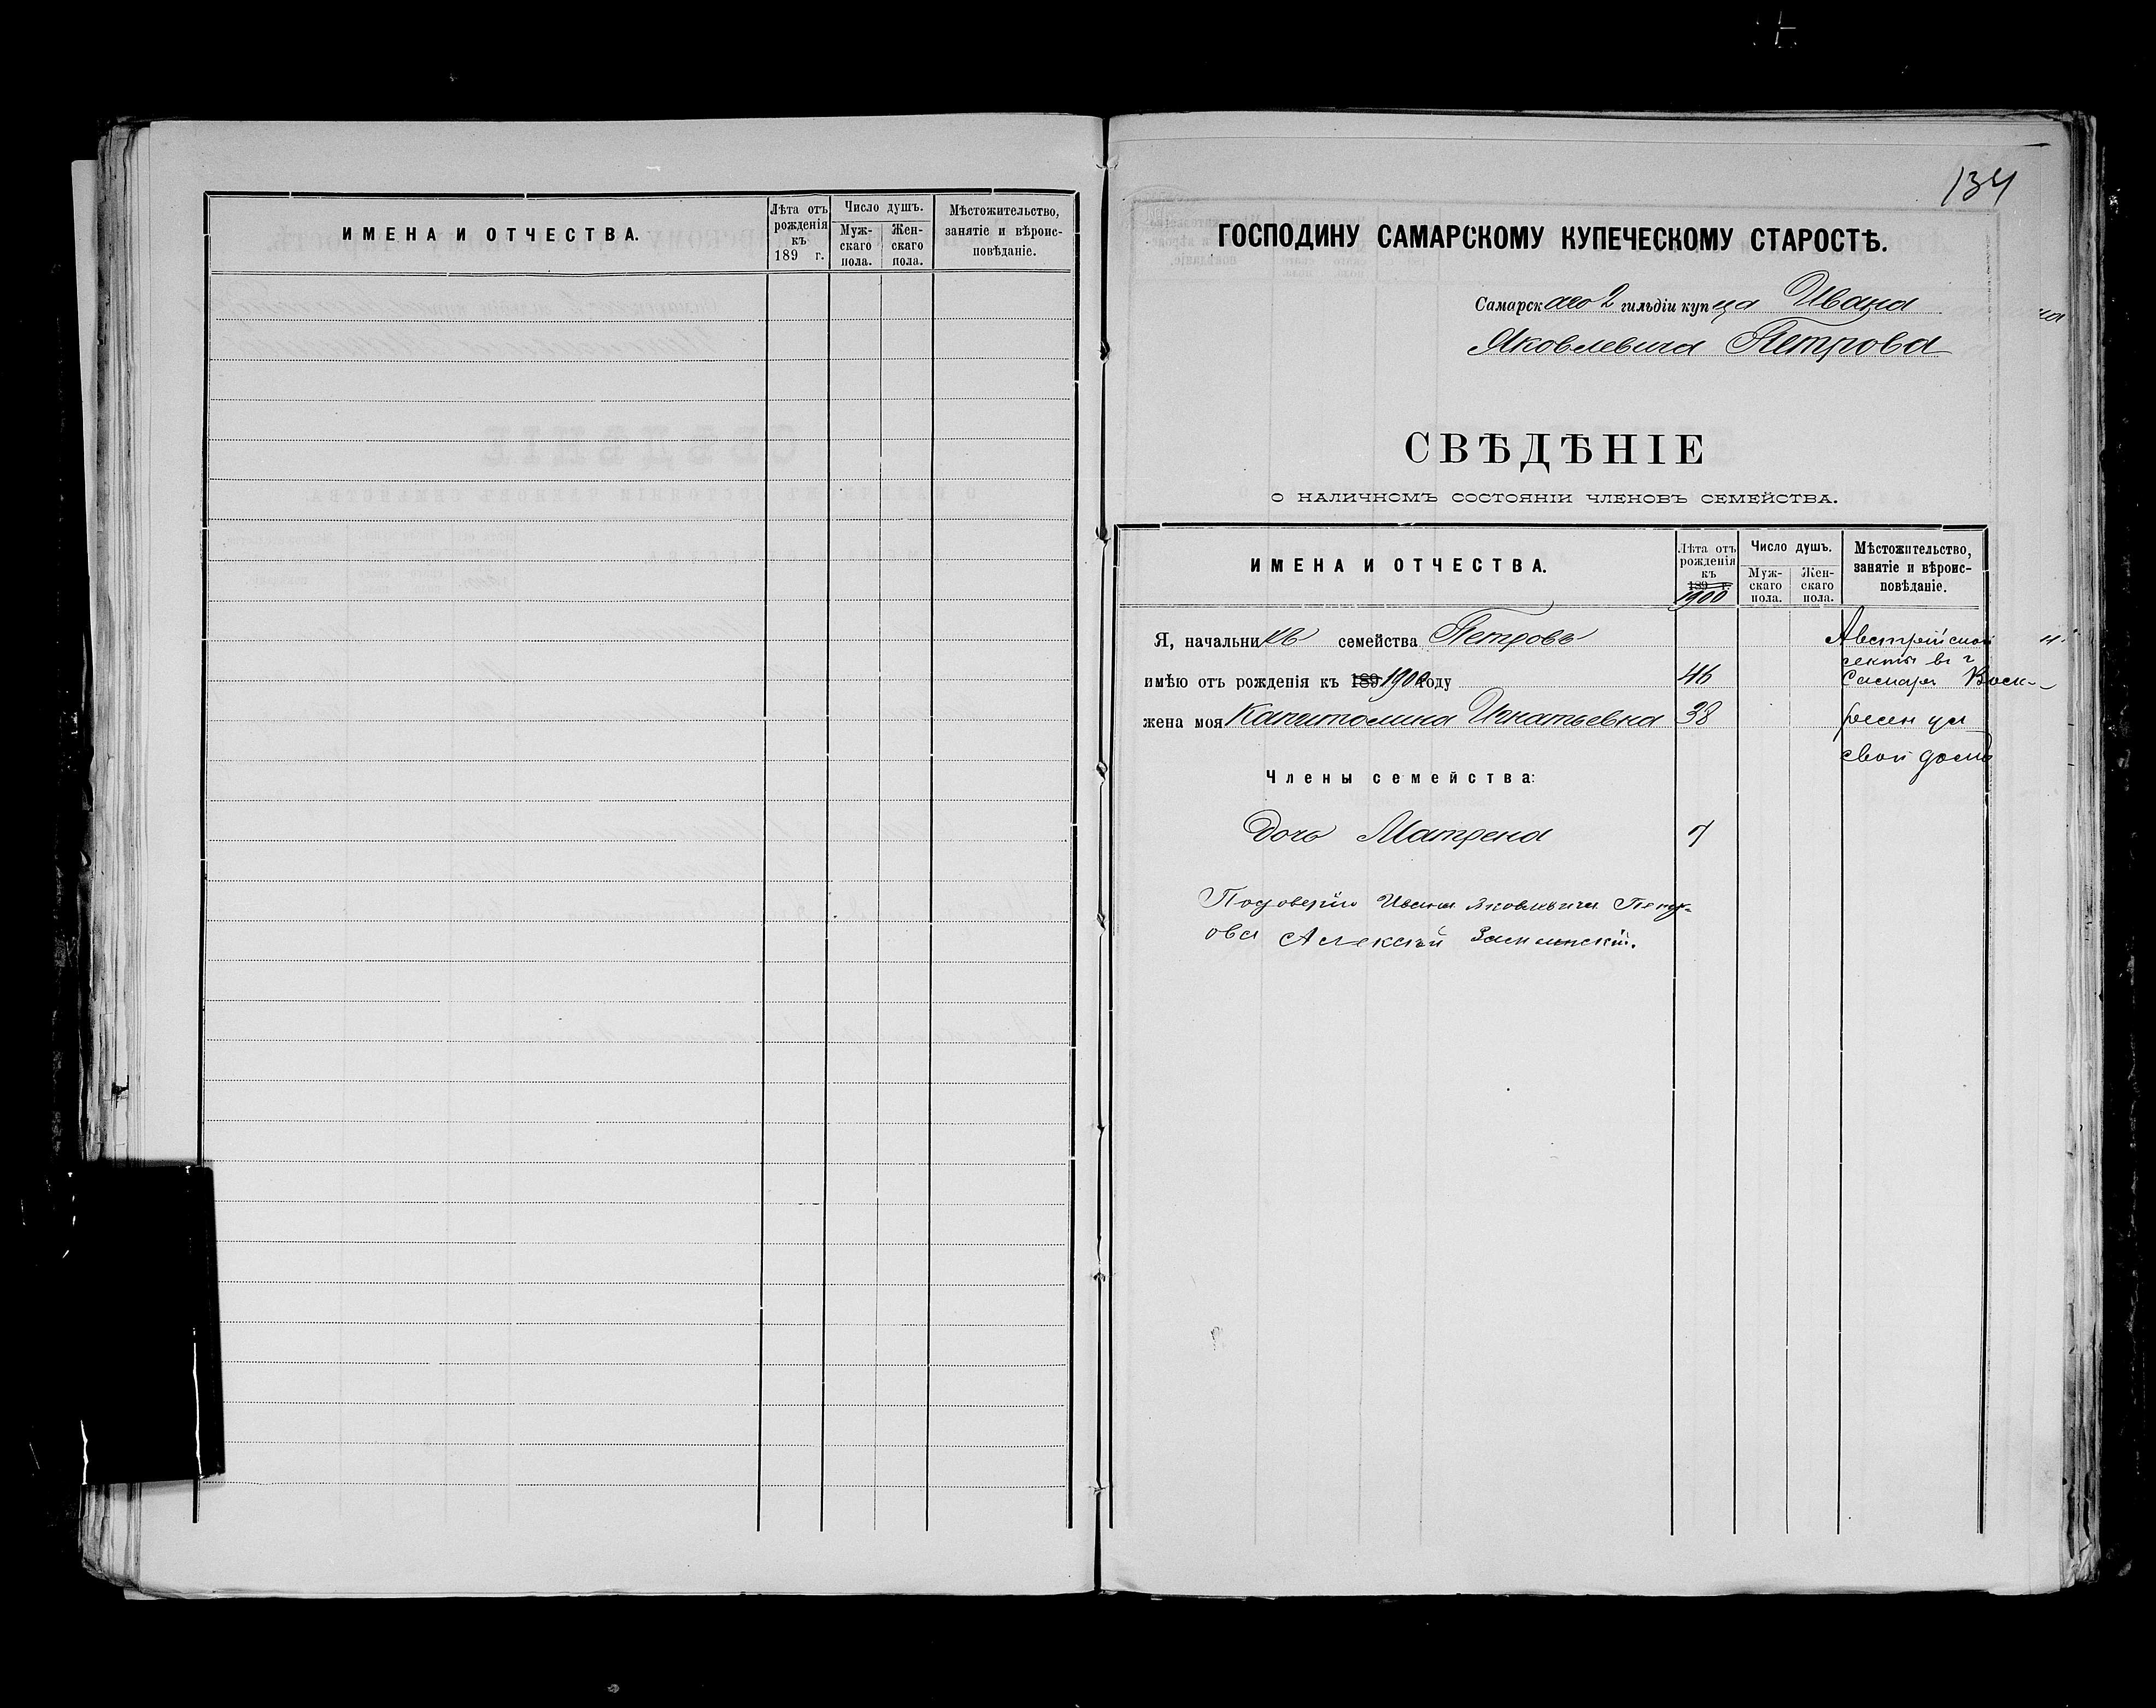 ИМЕНА И ОТЧЕСТВА.
Лѣта отъ рожденія къ 189 г.
Число душъ.
Муж-
скаго
пола.
Жен-
скаго
пола.
Мѣстожительство,
занятіе и вѣроис-
повѣданіе.
134
ГОСПОДИНУ САМАРСКОМУ КУПЕЧЕСКОМУ СТАРОСТѢ.
Самарскаго 2 гильдіи купца Ивана
Яковлевича Петрова
СВѢДѢНІЕ
О НАЛИЧНОМЪ СОСТОЯНІИ ЧЛЕНОВЪ СЕМЕЙСТВА.
ИМЕНА И ОТЧЕСТВА.
Лѣта отъ
рожденія
къ
189 г.
1900
Число душъ.
Муж-
скаго
пола.
Жен-
скаго
пола.
Мѣстожительство,
занятіе и вѣроис-
повѣданіе.
Я, начальникъ семейства Петровъ
Австрійской
секты въ г
имѣю отъ рожденія къ 189 1900 году 46 Самара Воск-
жена моя Капитолина Игнатьевна 38 ресен ул
свой домъ
Члены семейства:
Дочь Матрена 7
По доверію Ивана Яковлевича Петр-
ова Алексѣй